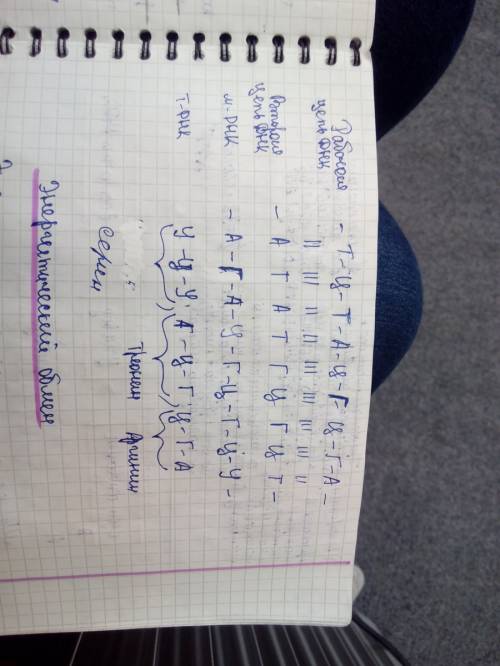 Рабочая
цепь ДНК – Т-Ц-Т-А-Ц-Г-Ц-Г-А –
|| ||| || || ||| ||| ||| ||| ||
Вторая
цепь ДНК – А Т А Т Г Ц Г Ц Т –
м-РНК – А-Г-А-У-Г-Ц-Г-Ц-У –
т-РНК У-Ц-У, А-Ц-Г, Ц-Г-А
Серин Треонин Аргинин
Энергетический обмен